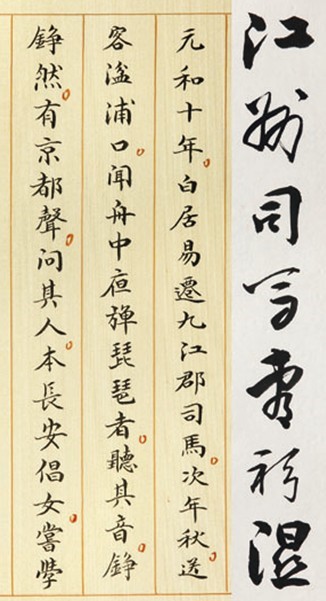 江州司马青衫湿
元和十年白居易遷九江郡司馬次年秋送
客湓浦口聞舟中夜彈琵琶者聽其音錚
錚然有京都聲問其人本長安倡女嘗學